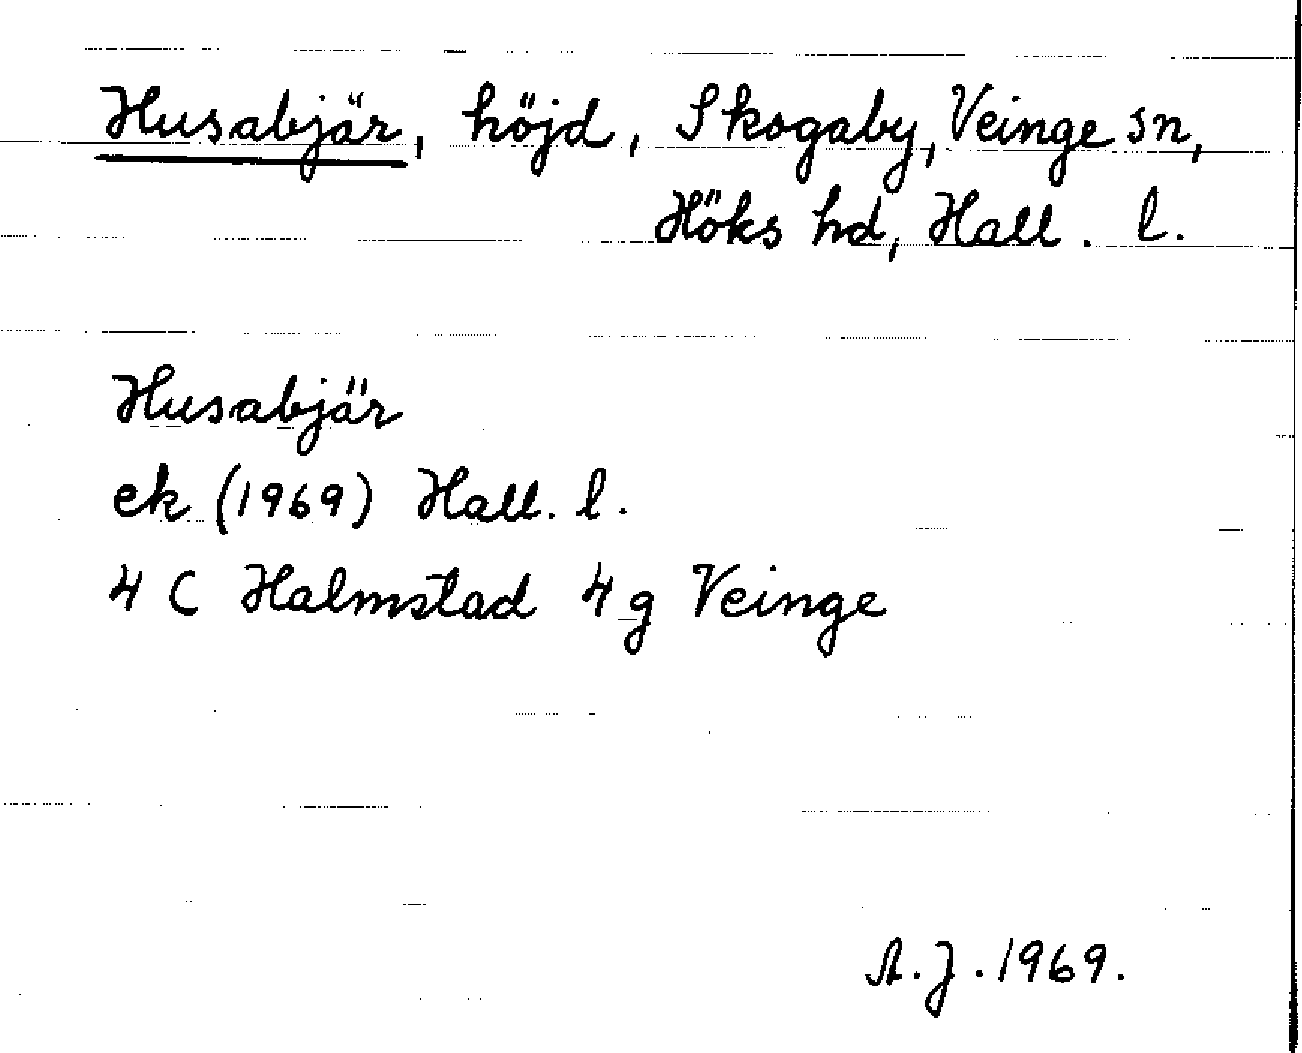 Husabjär, höjd, Skogaby, Veinge sn,
Höks hd, Hall. l.
Husabjär
ek (1969) Hall. l.
4 C Halmstad 4 g Veinge
A.J. 1969.